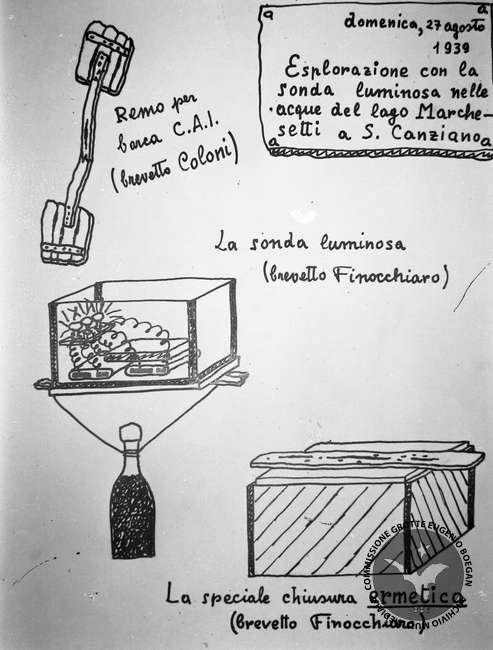 domenica, 27 agosto
1939
Esplorazione con la
sonda luminosa nelle
acque del lago Marche-
setti a S. Canziano
a
a
a
a
Remo per
barca C.A.I.
(brevetto Coloni)
La sonda luminosa
(brevetto Finocchiaro)
La speciale chiusura ermetica
(brevetto Finocchiaro)
COMMISSIONE GROTTE EUGENIO BOEGAN